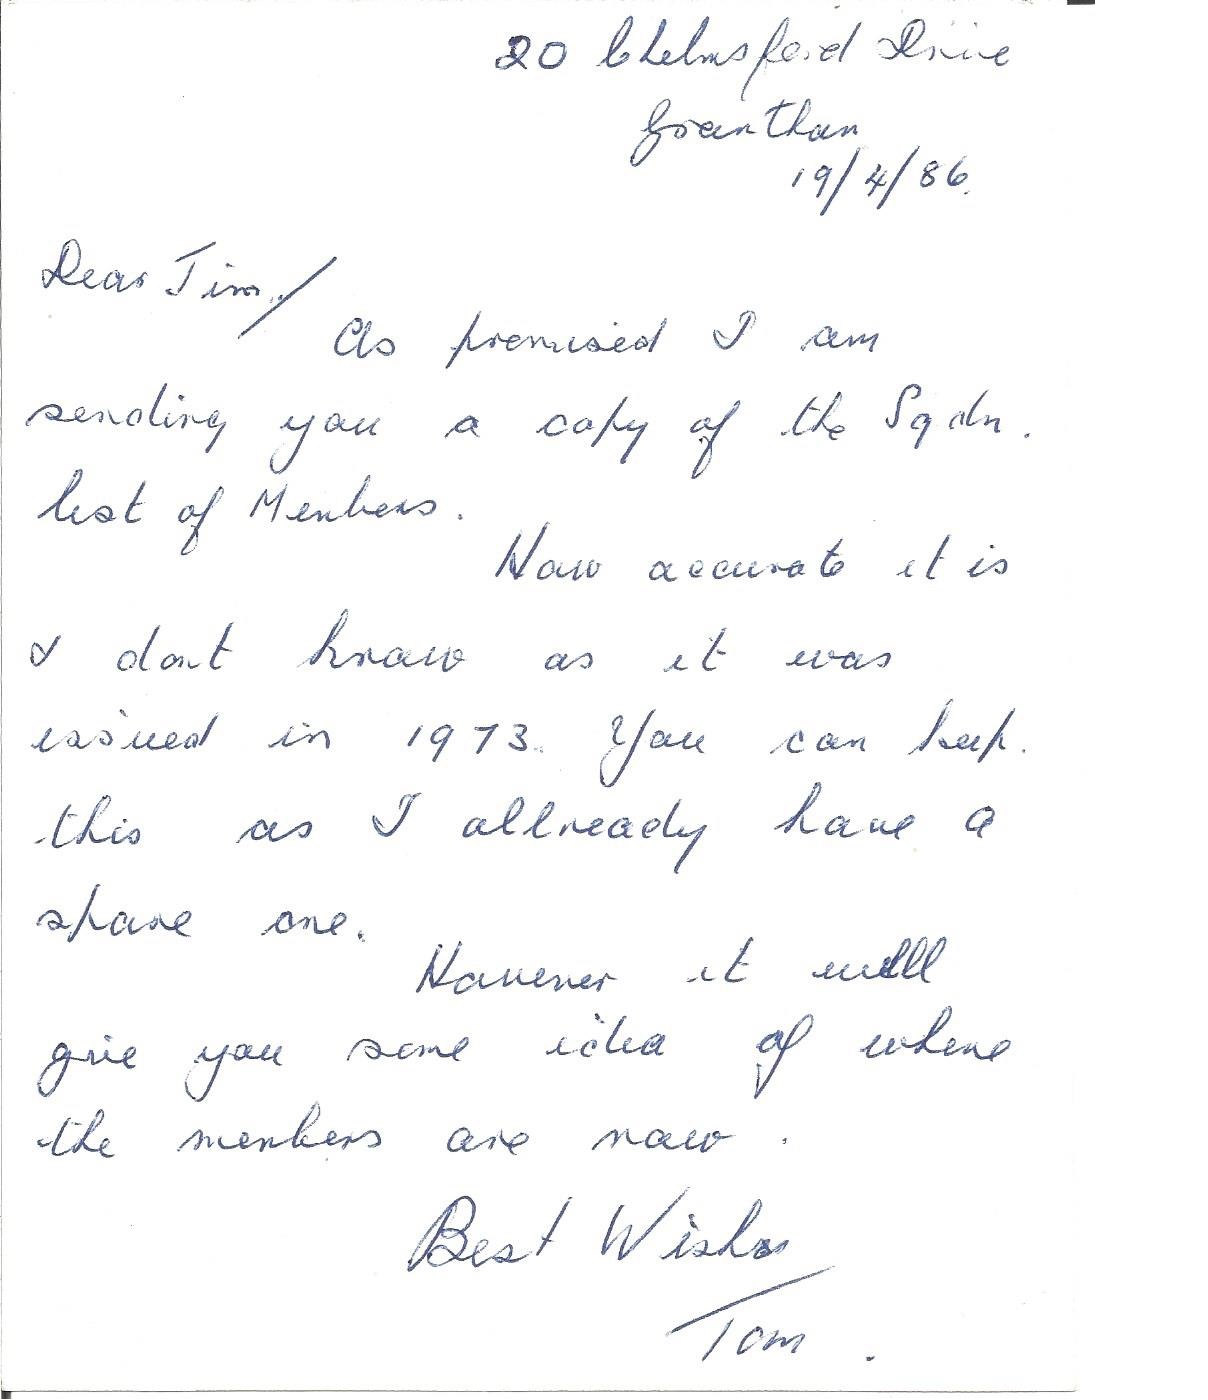 20 Chelmsford Drive
Grantham
19/4/86.
Dear Jim,/
As promised I am
sending you a copy of the Sqdn.
list of Members.
How accurate it is
I dont know as it was
issued in 1973. You can keep.
this as I allready have a
spare one.
However it will
give you some idea of where
the members are now.
Best Wishes
Tom.